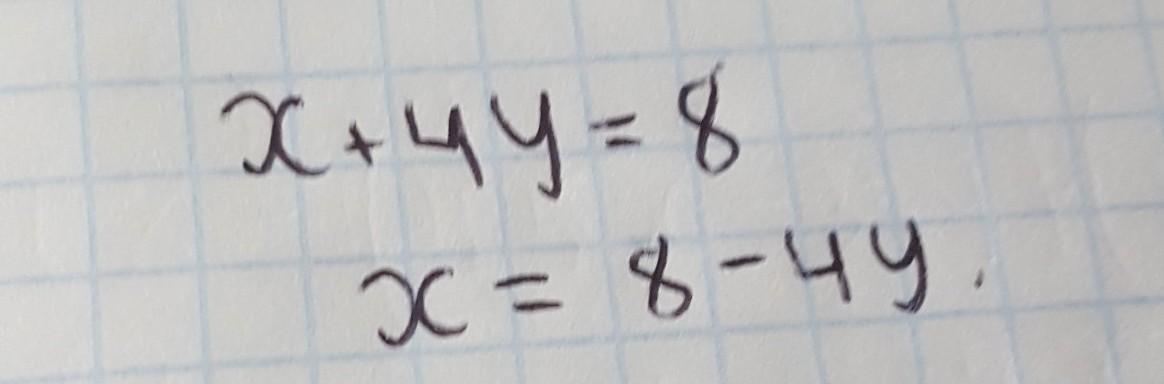 x + 4y = 8
x = 8 - 4y.